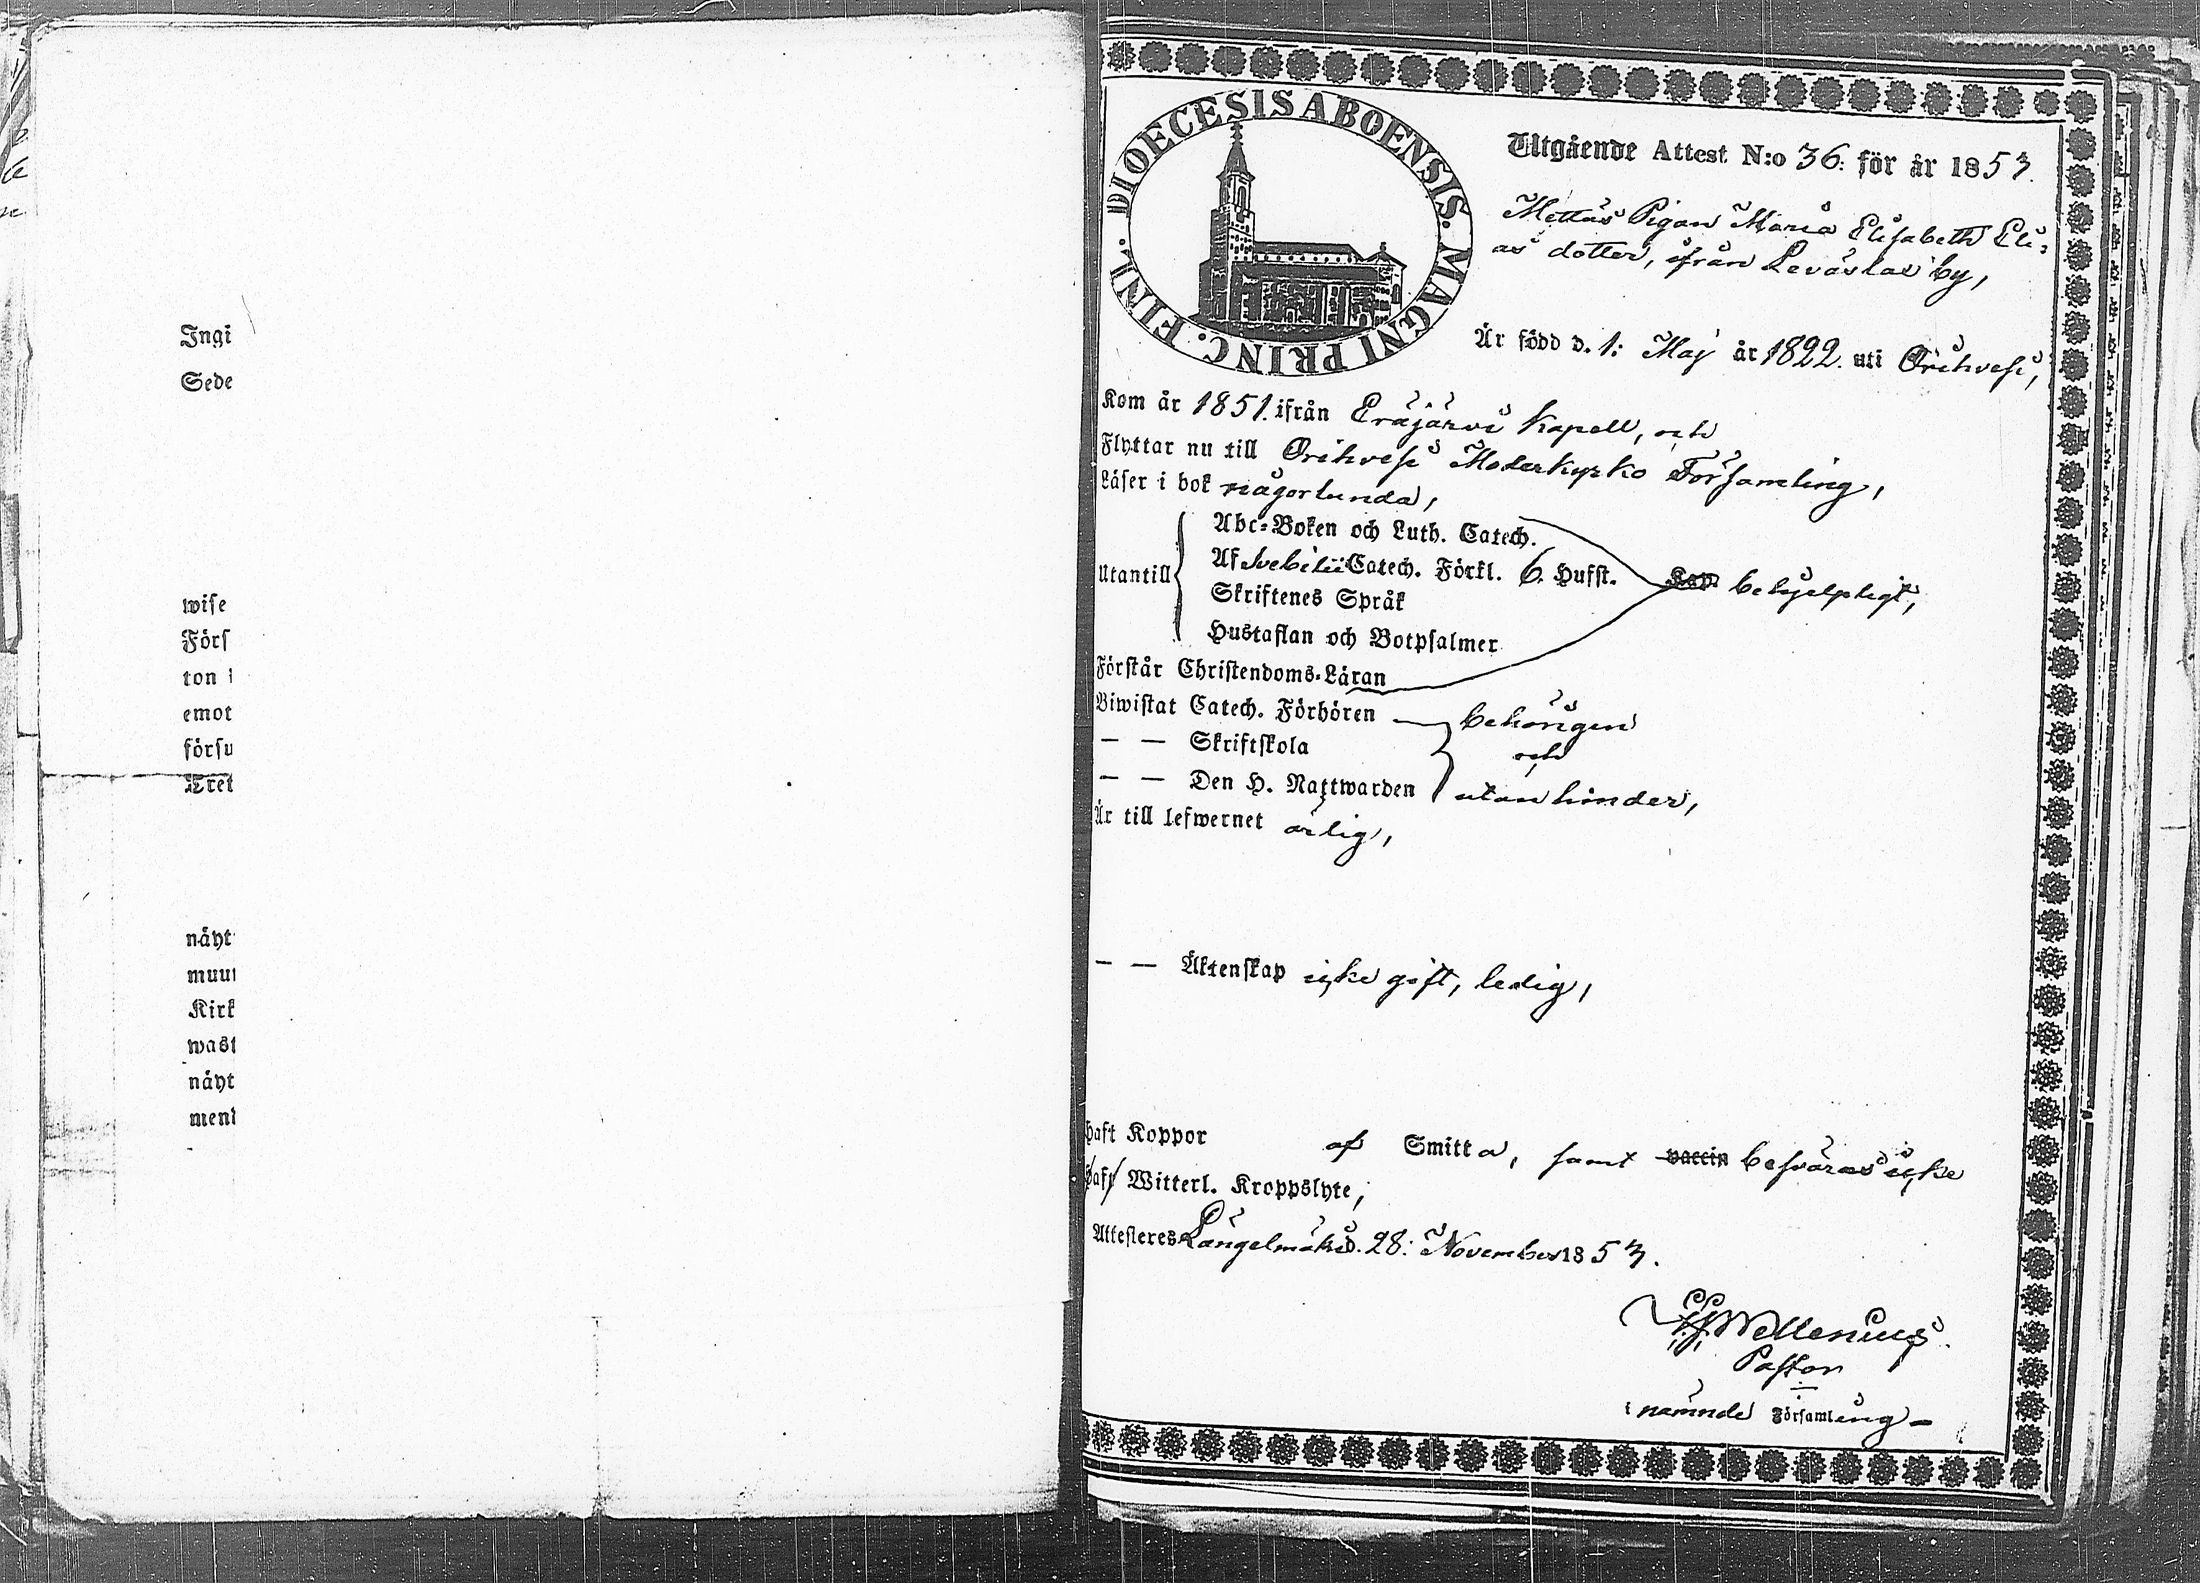 Ingi
Sede
wise
Förs
ton
emot
försu
Tret
näyt
muut
Kirk
wast
näyt
ment
DIOECESIS ABOENSIS. MAGNI PRINC. FINL.
Utgående Attest N:o 36. för år 1853.
Pigan Maria Elisabeth Eli=
as dotter, ifrån Leväslax by,
Är född d. 1: Maj år 1822. uti Orihvesi,
Kom år 1851. ifrån Eräjärvi Kapell, och
Flyttar nu till Orihvesi Moderkyrko Församling,
Läser i bok någorlunda,
Utantill
Abc=Boken och Luth. Catech.
Af Svebilii Catech. Förkl. 6. Hufst.
Skriftenes Språk
Hustaflan och Botpsalmer
behjelpligt,
Förstår Christendoms=Läran
Biwistat Catech. Förhören — behörigen
— — Skriftskola och
— — Den H. Nattwarden utan hinder,
Är till lefwernet ärlig,
— — Äktenskap icke gift, ledig,
Haft Koppor af Smitta, samt vaccin besväras icke
Haft Witterl. Kroppslyte,
Attesteres Längelmäki d. 28: November 1853.
Wellenius.
Pastor
i nämnde Församling —